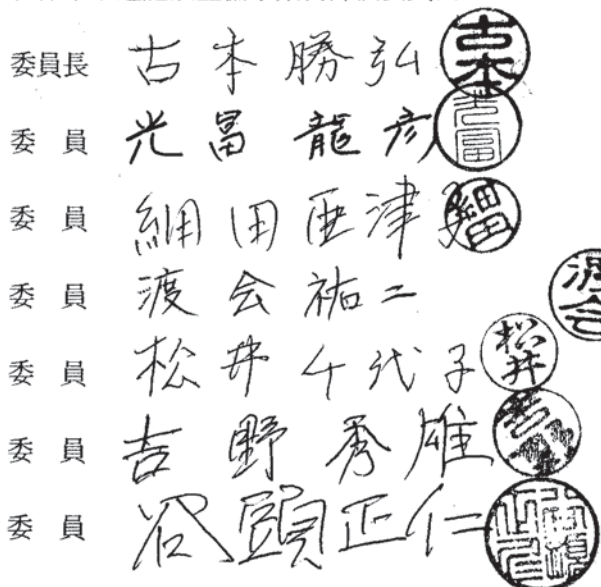 委員長 古本勝弘 古本
委員 光冨龍彦 光冨
委員 細田亜津子 細田
委員 渡会祐二 渡会
委員 松井千代子 松井
委員 吉野秀雄
委員 谷頭正仁